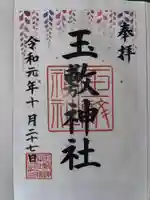 奉拝
玉敷神社
令和元年十月二十七日